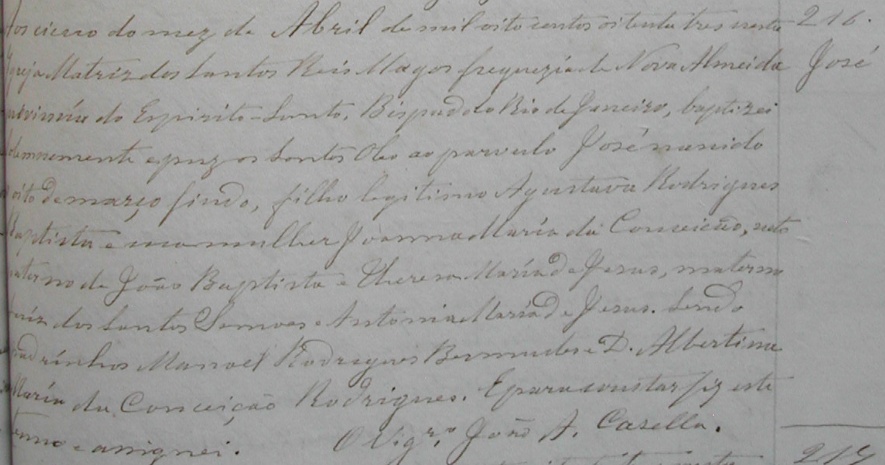 Aos cinco do mez de Abril de mil oito centos oitenta tres nesta
Igreja Matriz dos Santos Reis Magos freguezia de Nova Almeida
provincia do Espirito-Santo, Bispado do Rio de Janeiro, baptizei
solemnemente e puz os Santos Oleos ao parvulo José nascido
oito de março findo, filho legitimo Agustava Rodrigues
Baptista e sua mulher Joanna Maria da Conceição, neto
paterno de João Baptista e Thereza Maria de Jesus, materno
dos Santos e Antonia Maria de Jesus. Sendo
padrinhos Manoel Rodrigues Bermudes e D. Albertina
Maria da Conceição Rodrigues. E para constar fiz este
termo e assignei. O Vigr.º João A. Casella.
216.
José
217